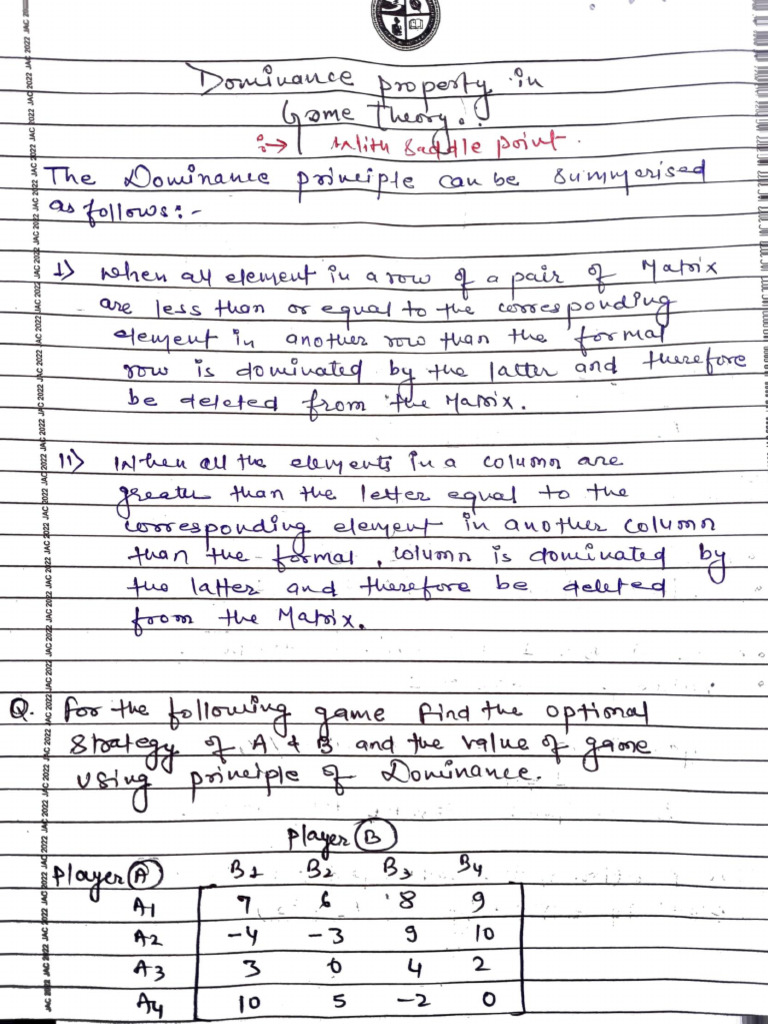 Dominance property in
Game theory.
:→ With Saddle point.
The Dominance principle can be summerised
as follows:-
I) When all element in a row of a pair of Matrix
are less than or equal to the corresponding
element in another row than the formal
row is dominated by the latter and therefore
be deleted from the Matrix.
II) When all the elements in a column are
greater than the letter equal to the
corresponding element in another column
than the formal, column is dominated by
the latter and therefore be deleted
from the Matrix.
Q. For the following game find the optional
Strategy of A & B and the value of game
using principle of Dominance.
Player B
Player A B1 B2 B3 B4
A1 7 6 8 9
A2 -4 -3 9 10
A3 3 0 4 2
A4 10 5 -2 0
JAC 2022 JAC 2022 JAC 2022 JAC 2022 JAC 2022 JAC 2022